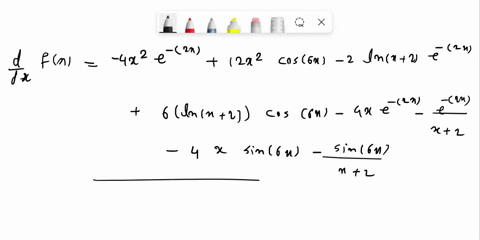 d/dx f(x) = -4x² e^-(2x) + 12x² cos(6x) - 2 ln(x+2) e^-(2x)
+ 6(ln(x+2]) cos(6x) - 4x e^-(2x) - e^-(2x)/x+2
- 4 x sin(6x) - sin(6x)/x+2